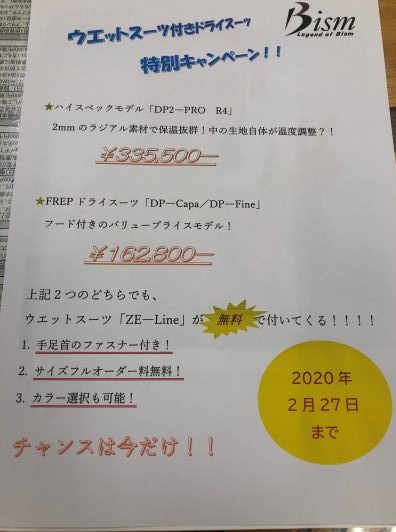 Bism
Legend of Bism
ウエットスーツ付きドライスーツ
特別キャンペーン！！
★ハイスペックモデル「DP2―PRO　R4」
2mmのラジアル素材で保温抜群！中の生地自体が温度調整？！
￥335,500―
★FREPドライスーツ「DP―Capa／DP―Fine」
フード付きのバリュープライスモデル！
￥162,800―
上記２つのどちらでも、
ウエットスーツ「ZE―Line」が 無料 で付いてくる！！！！
1. 手足首のファスナー付き！
2. サイズフルオーダー料無料！
3. カラー選択も可能！
2020年
2月27日
まで
チャンスは今だけ！！